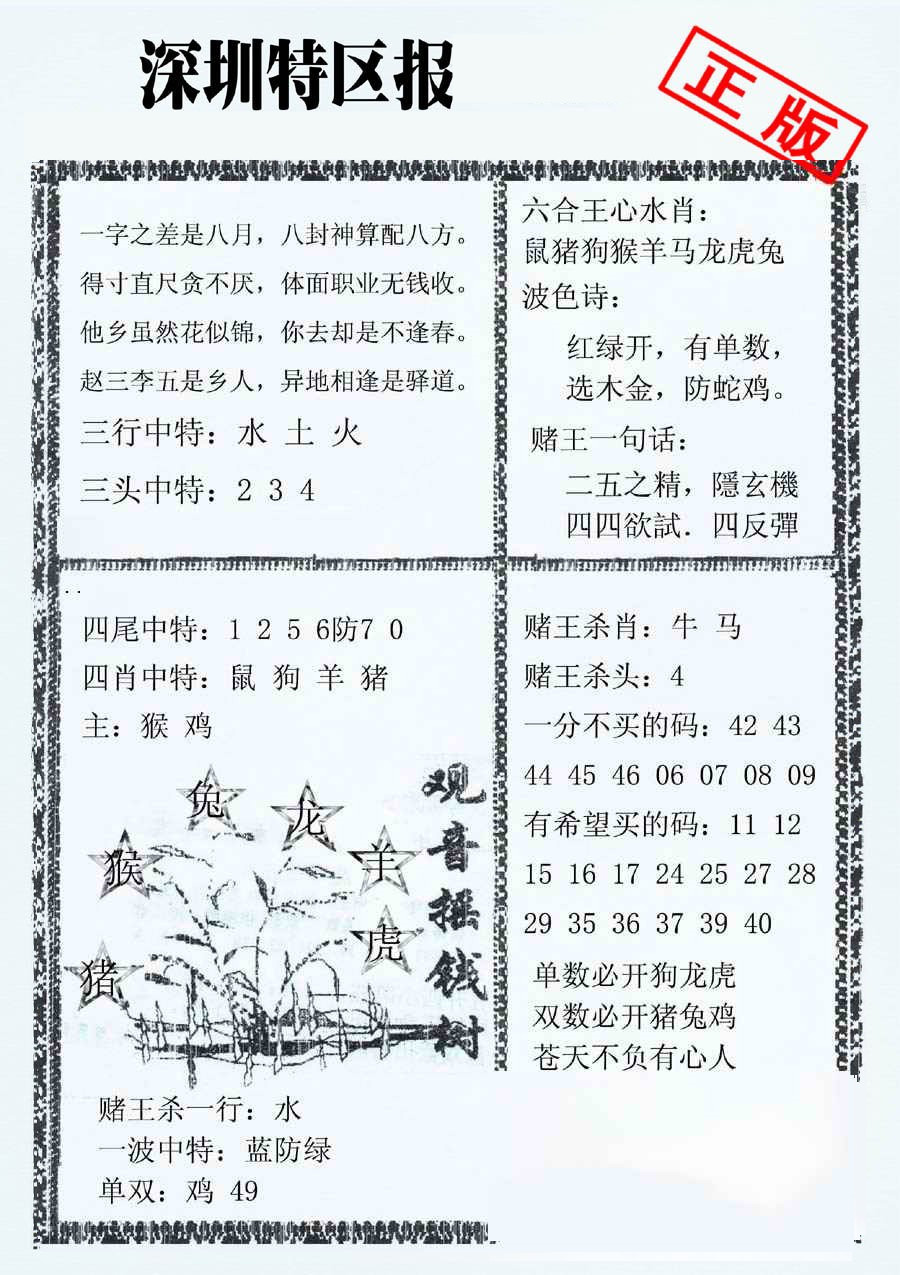 深圳特区报
正版
一字之差是八月，八封神算配八方。
得寸直尺贪不厌，体面职业无钱收。
他乡虽然花似锦，你去却是不逢春。
赵三李五是乡人，异地相逢是驿道。
三行中特：水 土 火
三头中特：2 3 4
六合王心水肖：
鼠猪狗猴羊马龙虎兔
波色诗：
红绿开，有单数，
选木金，防蛇鸡。
赌王一句话：
二五之精，隱玄機
四四欲試．四反彈
四尾中特：1 2 5 6防7 0
四肖中特：鼠 狗 羊 猪
主：猴 鸡
兔
龙
猴
羊
虎
猪
观音摇钱树
赌王杀一行：水
一波中特：蓝防绿
单双：鸡 49
赌王杀肖：牛 马
赌王杀头：4
一分不买的码：42 43
44 45 46 06 07 08 09
有希望买的码：11 12
15 16 17 24 25 27 28
29 35 36 37 39 40
单数必开狗龙虎
双数必开猪兔鸡
苍天不负有心人